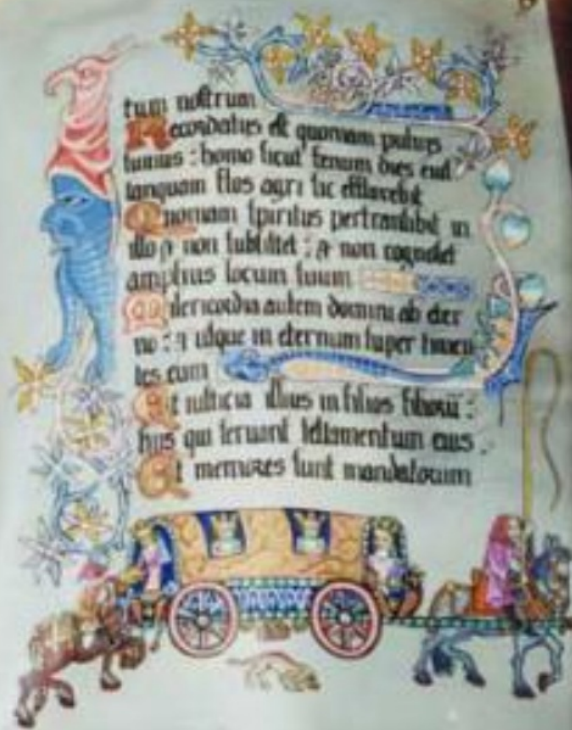 tum nostrum
Recordatus est quoniam pulvis
sumus : homo sicut fenum dies eius
tanquam flos agri sic efflorebit
Quoniam spiritus pertransibit in
illo ⁊ non subsistet : ⁊ non cognoscet
amplius locum suum
Misericordia autem domini ab eter
no : ⁊ usque in eternum super timen
tes eum
Et iusticia illius in filios filiorū :
hiis qui servant testamentum eius .
Et memores sunt mandatorum